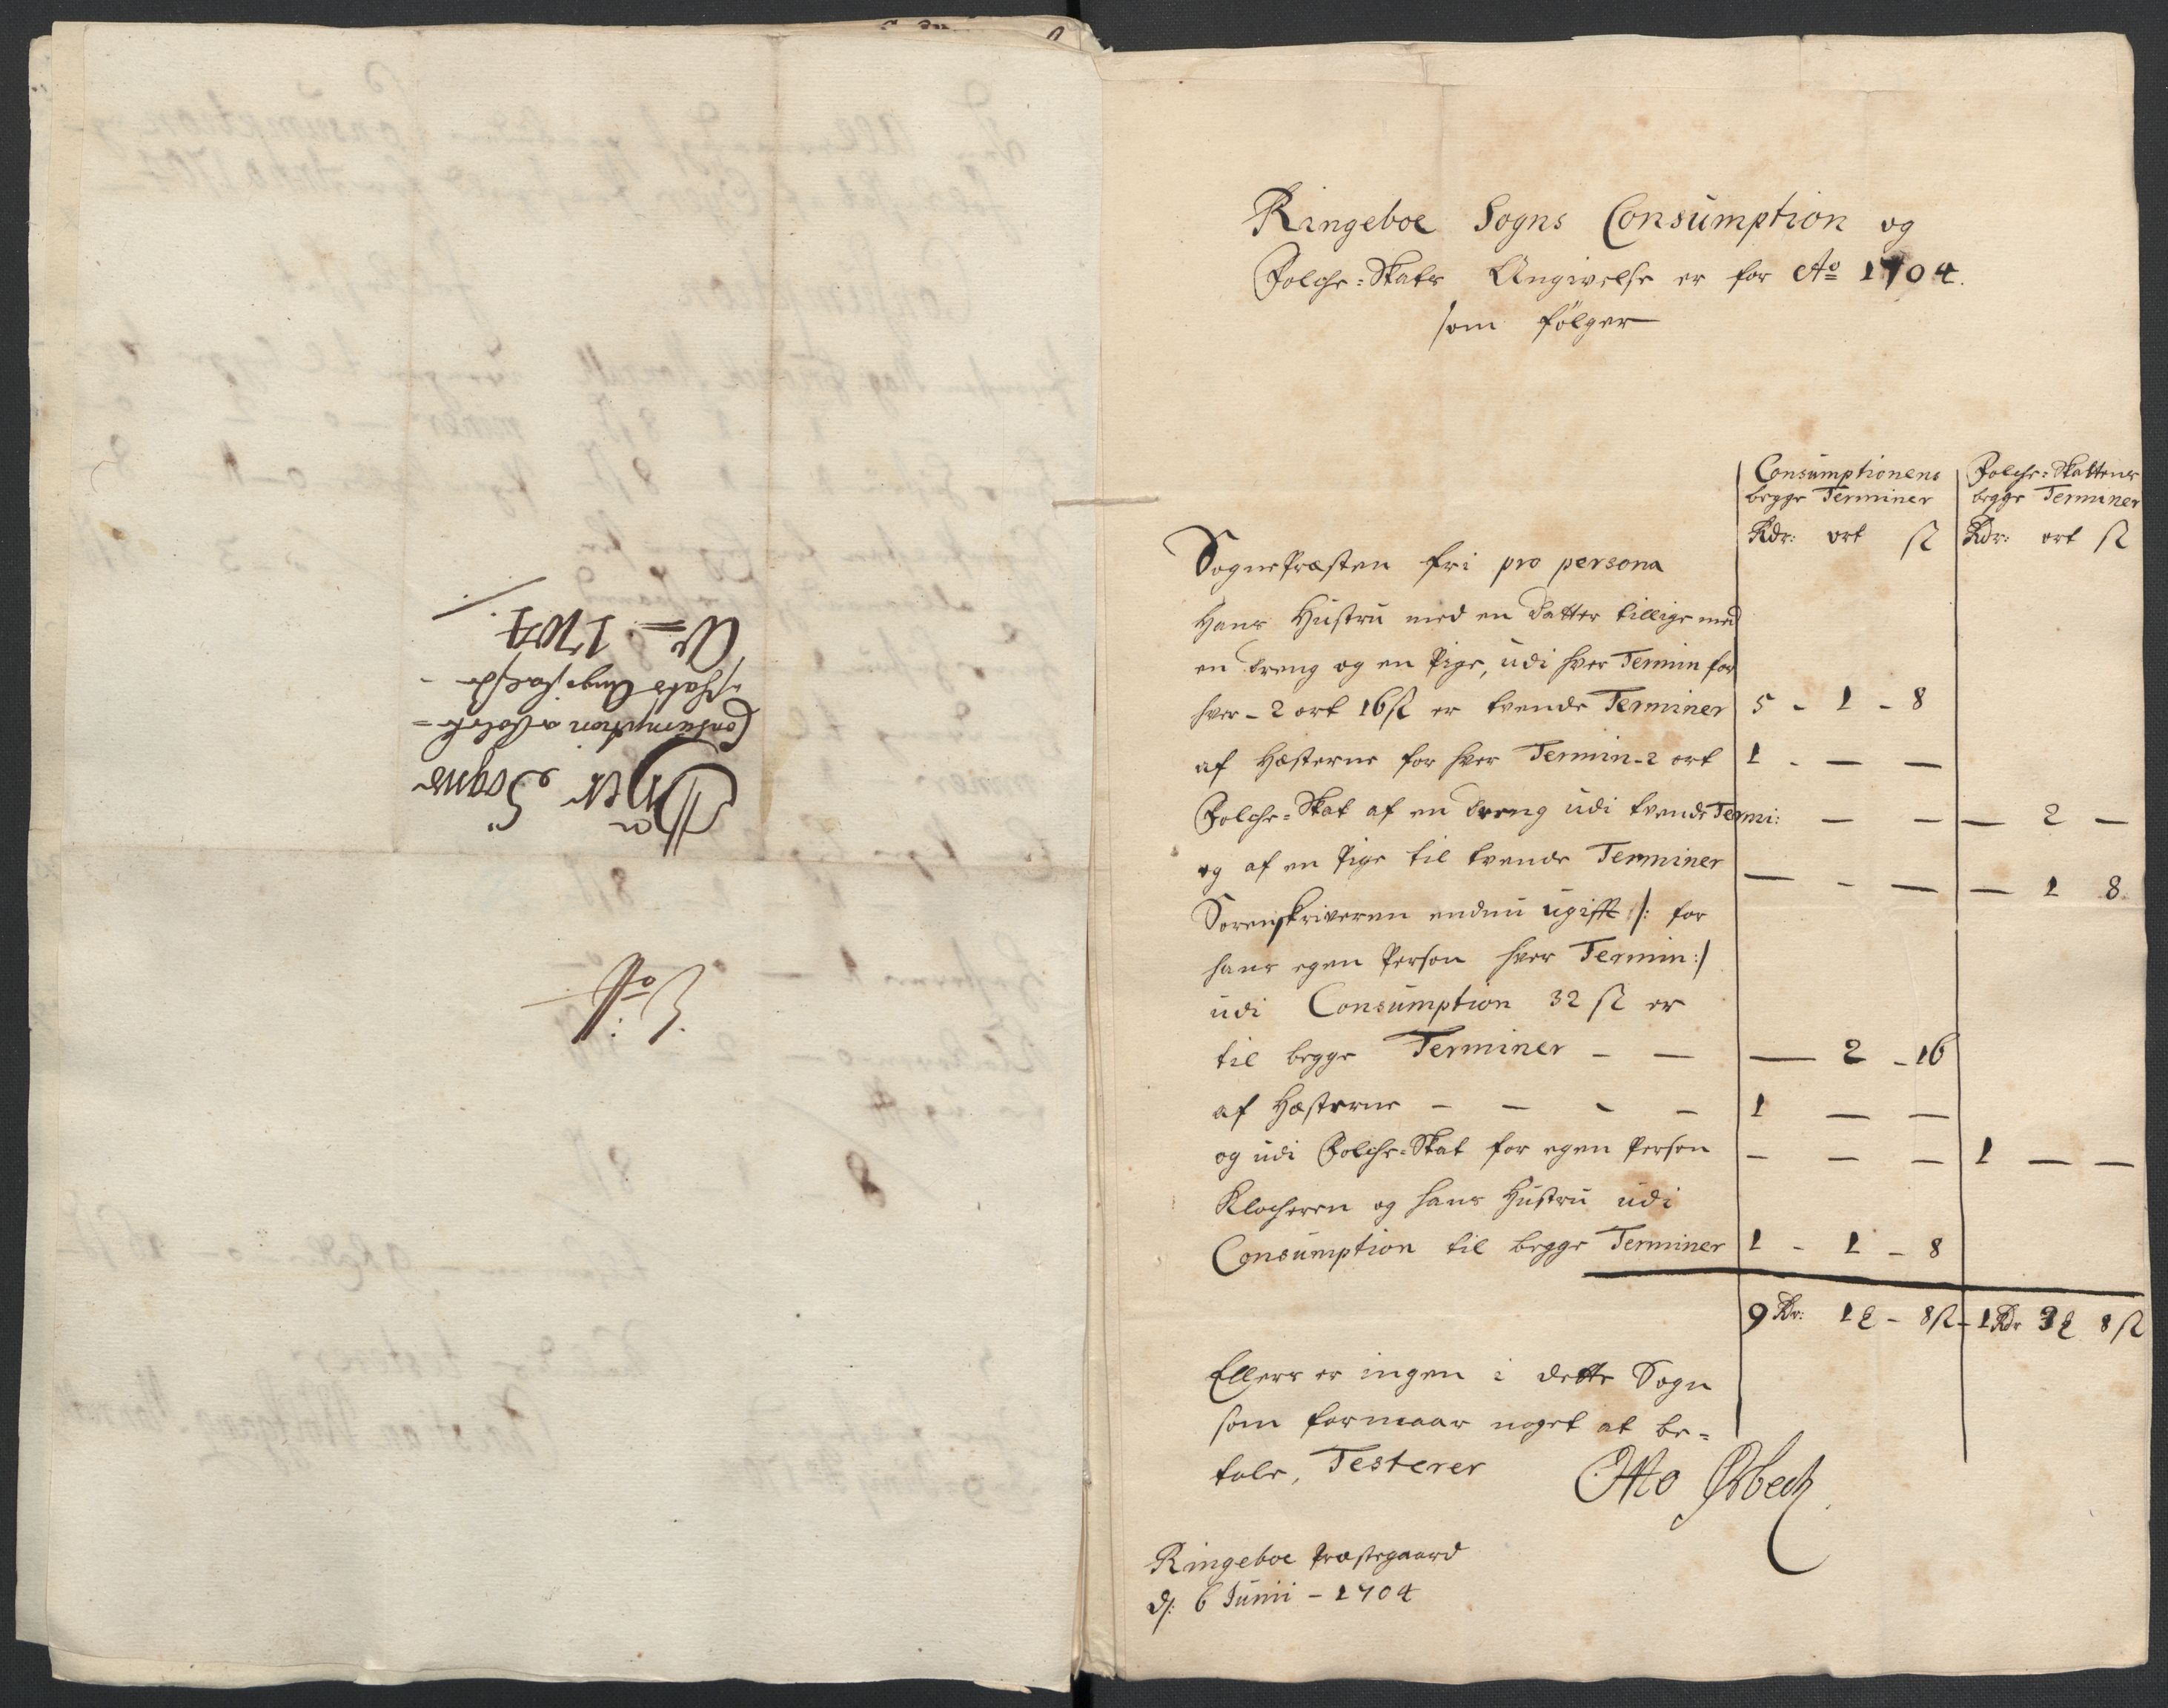 Sogns
Consumption
Ao 1704
Ringeboe Sogns Consumption og
Folche-Skats Angivelse er for Ao 1704.
som følger
Consumptionens
begge Terminer
Rdr: ort ß
Folche-Skattens
begge Terminer
Rdr: ort ß
Sognepræsten fri pro persona
Hans Hustru med en datter tillige med
en dreng og en Pige, udi hver Termin for
hver - 2 ort 16 ß er tvende Terminer 5 - 1 - 8
af Hæsterne for hver Termin - 2 ort 1 - — —
Folche-Skat af en dreng udi tvende Termi: — — — 2 —
og af en Pige til tvende Terminer — - — — 1 8
Sorenskriveren endnu ugifft /: for
hans egen Person hver Termin :/
udi Consumption 32 ß er
til begge Terminer - — — 2 - 16
af Hæsterne - - - - 1 — —
og udi Folche-Skat for egen Person — — — 1 — —
Klocheren og hans Hustru udi
Consumption til begge Terminer 1 - 1 - 8
9 Rdr: 1 - 8 ß - 1 Rdr 3 8 ß
Ellers er ingen i dette Sogn
som formaar noget at be-
tale, Testerer
Otto Ørbech
Ringeboe Præstegaard
d: 6 Junii - 1704